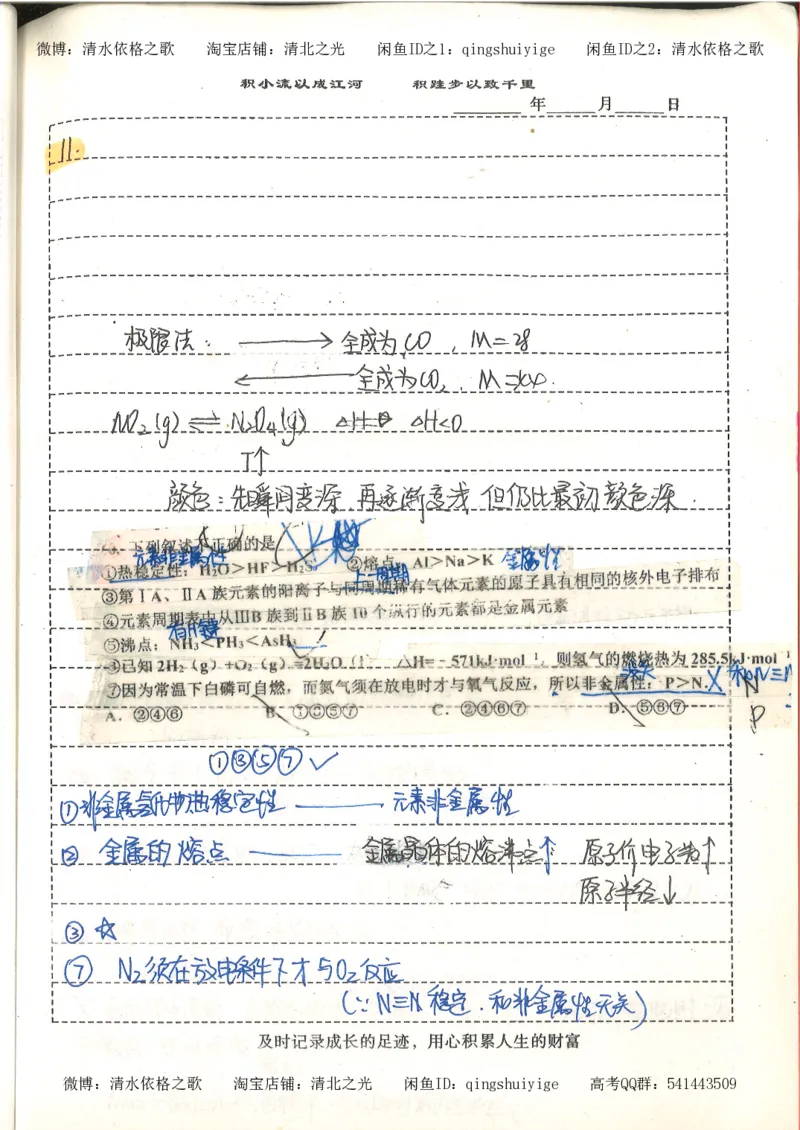 微博：清水依格之歌　淘宝店铺：清北之光　闲鱼ID之1：qingshuiyige　闲鱼ID之2：清水依格之歌
积小流以成江河　积跬步以致千里
年　月　日
11.
极限法：⟶ 全成为CO，M=28
⟵ 全成为CO₂，M=44.
NO₂(g) ⇌ N₂O₄(g)　ΔH<0
T↑
颜色：先瞬间变深 再逐渐变浅 但仍比最初颜色深.
下列叙述 正确的是
元素非金属性
①热稳定性：H₂O＞HF＞H₂S　②熔点：Al＞Na＞K 金属性
上一周期
③第ⅠA、ⅡA 族元素的阳离子与同周期稀有气体元素的原子具有相同的核外电子排布
④元素周期表中从ⅢB族到ⅡB族 10个纵行的元素都是金属元素
有H键
⑤沸点：NH₃＜PH₃＜AsH₃
③已知 2H₂（g）+O₂（g）=2H₂O（l） △H=﹣571kJ·mol⁻¹，则氢气的燃烧热为 285.5kJ·mol⁻¹
⑦因为常温下白磷可自燃，而氮气须在放电时才与氧气反应，所以非金属性：P＞N. X 和N≡N
无关
N
P
A．②④⑥　B．①③⑤⑦　C．②④⑥⑦　D．⑤⑥⑦
①③⑤⑦ ✓
①非金属氢化物热稳定性 —— 元素非金属性
② 金属的熔点 —— 金属晶体的熔沸点↑ 原子价电子数↑
原子半径↓
③ ☆
⑦ N₂须在放电条件下才与O₂反应
(∵ N≡N 稳定．和非金属性无关)
及时记录成长的足迹，用心积累人生的财富
微博：清水依格之歌　淘宝店铺：清北之光　闲鱼ID：qingshuiyige　高考QQ群：541443509